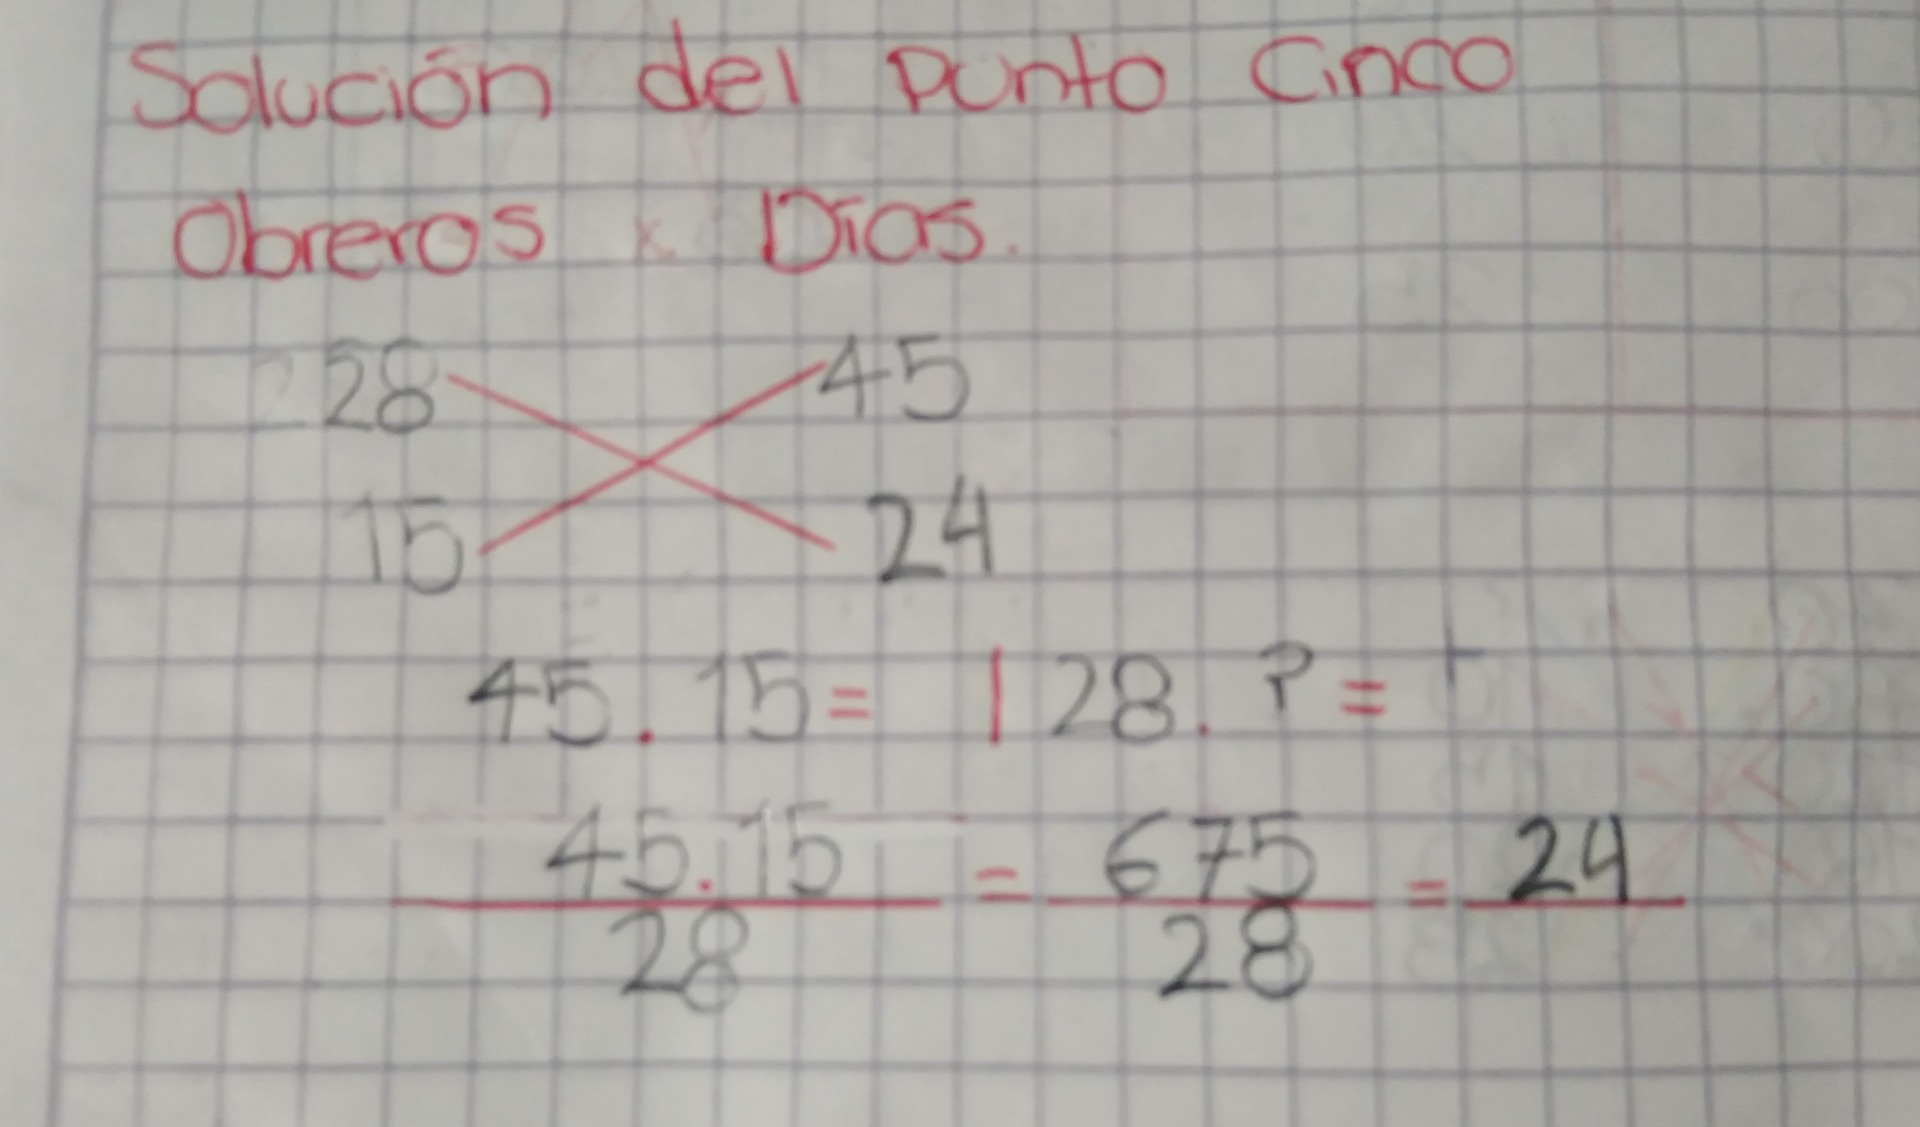 Solución del punto Cinco
Obreros x Días.
28 45
15 24
45 . 15 = | 28 . ? =
45.15 = 675 = 24
28 28